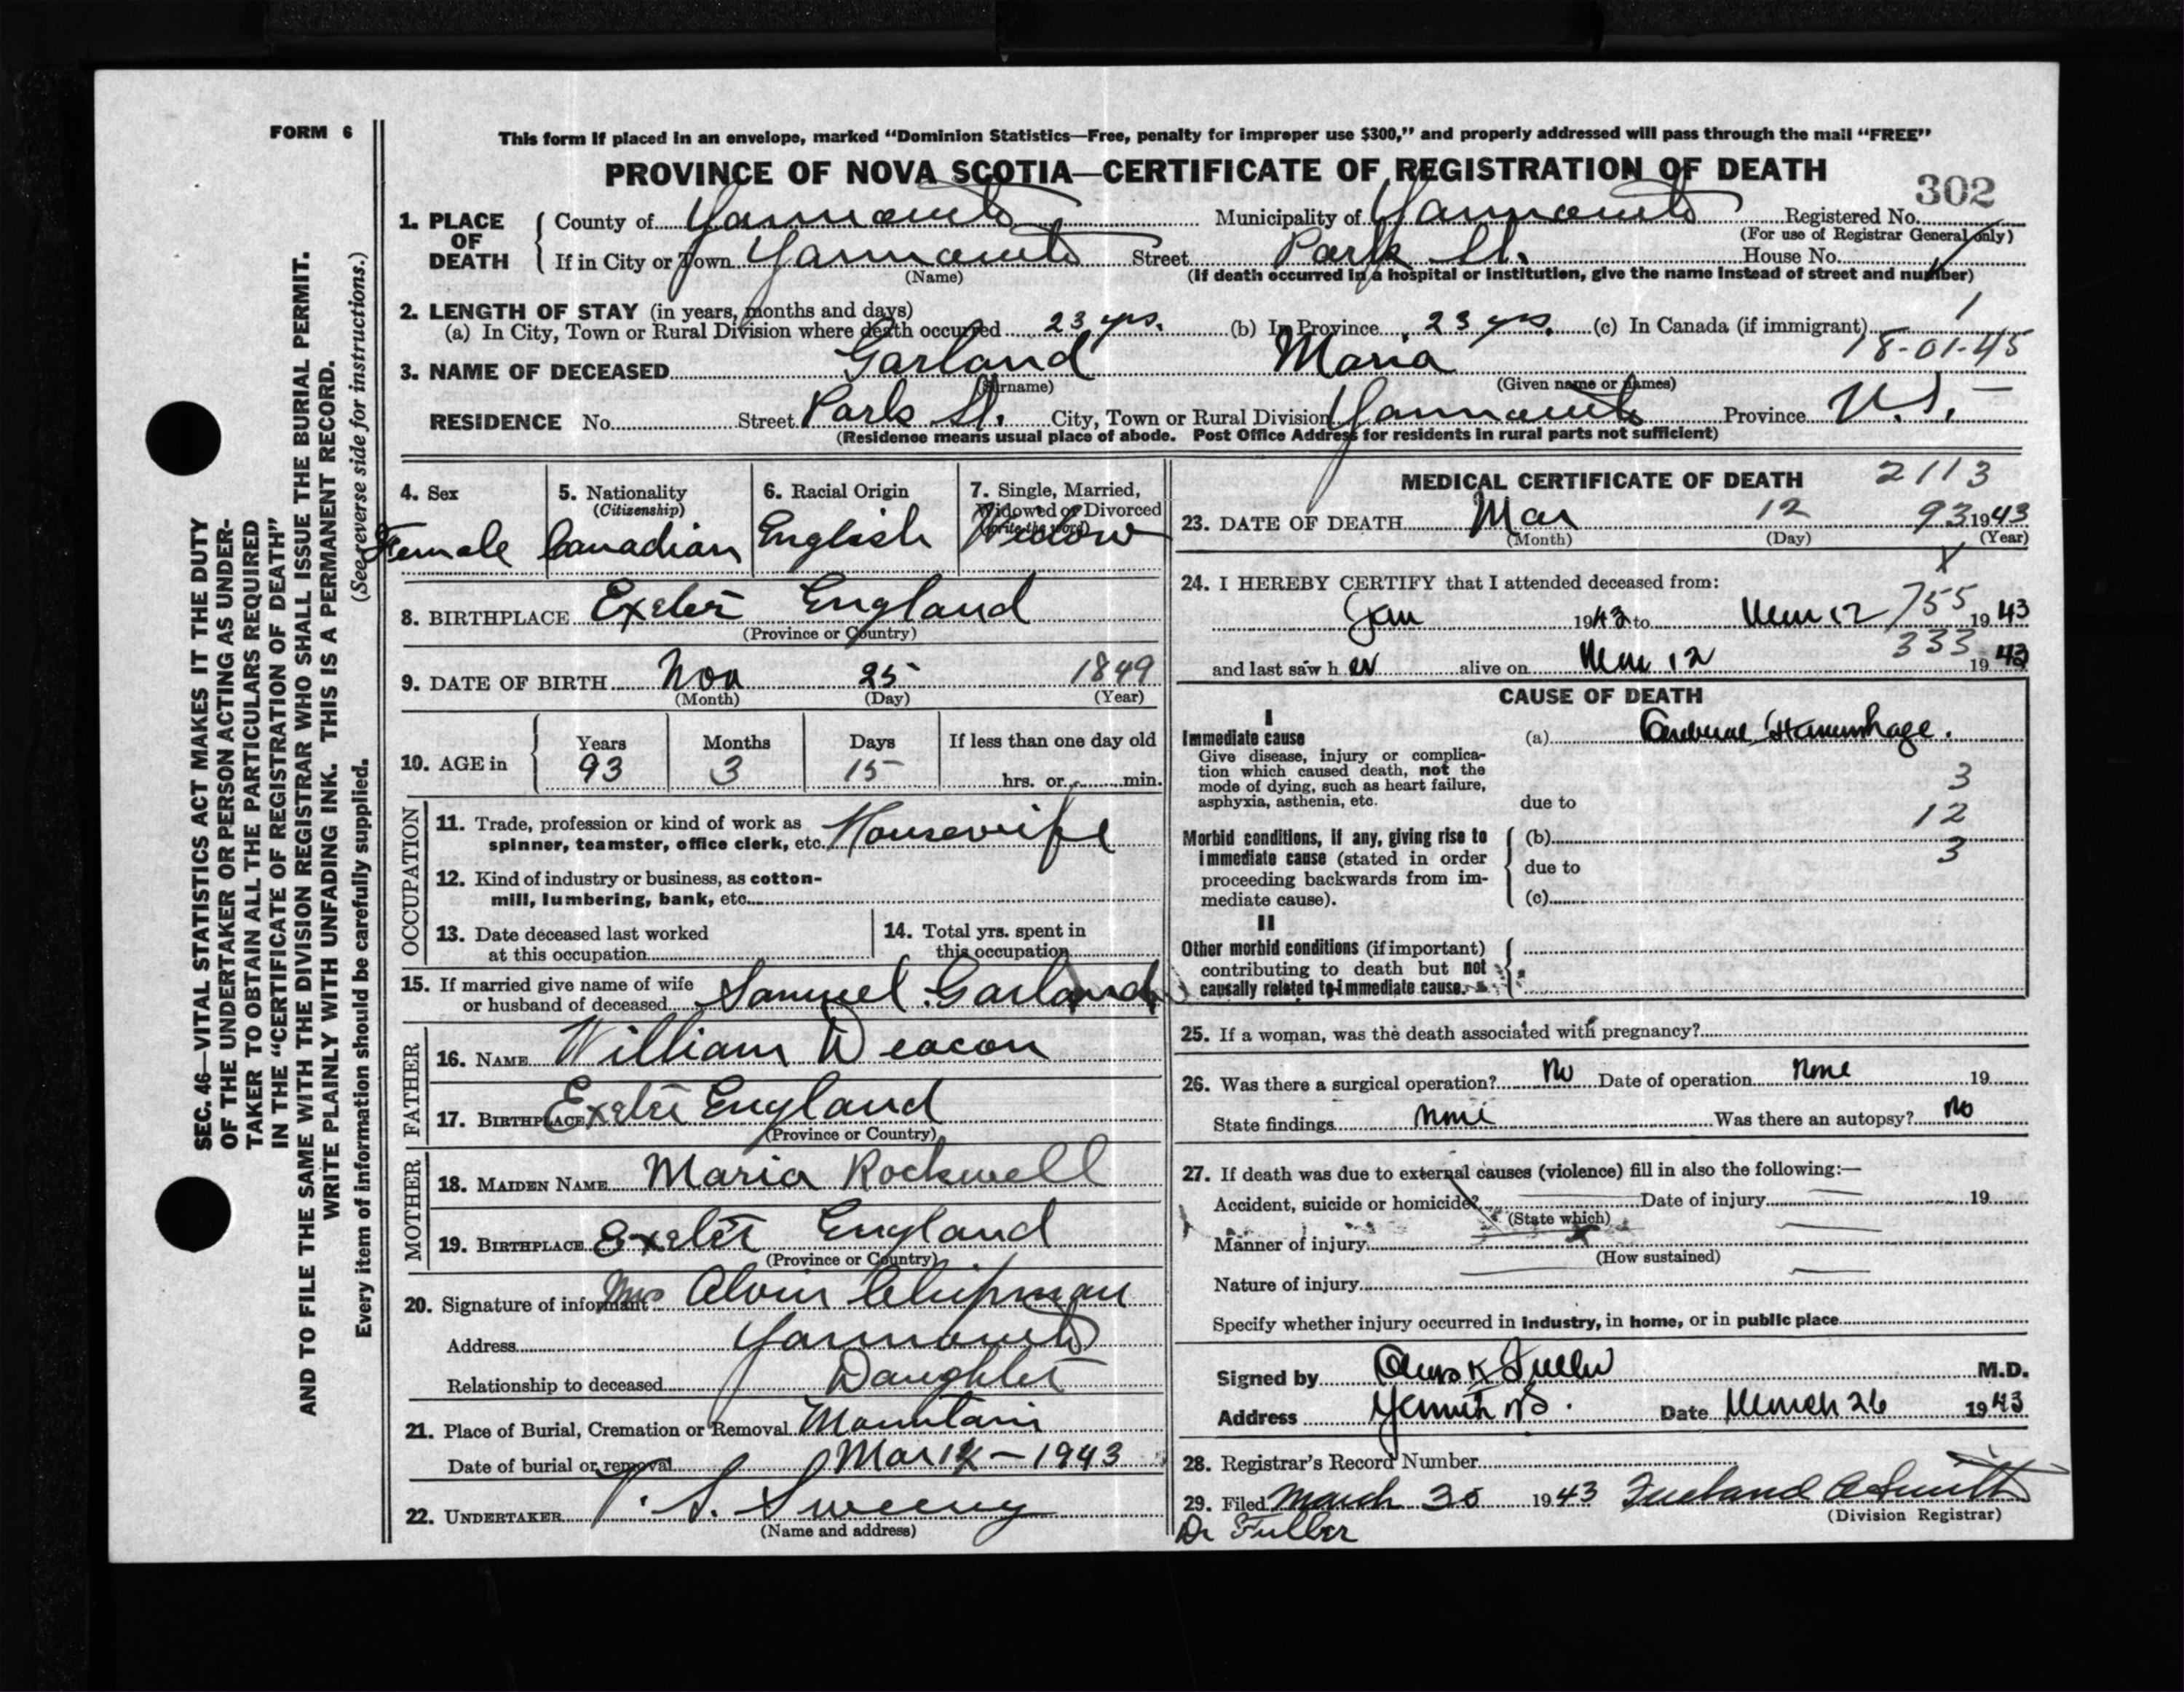 FORM 6
This form if placed in an envelope, marked “Dominion Statistics—Free, penalty for improper use $300,” and properly addressed will pass through the mail “FREE”
PROVINCE OF NOVA SCOTIA—CERTIFICATE OF REGISTRATION OF DEATH
302
1. PLACE OF DEATH County of Yarmouth Municipality of Yarmouth Registered No.
(For use of Registrar General only)
If in City or Town Yarmouth Street Park St. House No.
(Name) (If death occurred in a hospital or institution, give the name instead of street and number)
2. LENGTH OF STAY (in years, months and days)
(a) In City, Town or Rural Division where death occurred 23 yrs. (b) In Province 23 yrs. (c) In Canada (if immigrant)
18-01-45
3. NAME OF DECEASED Garland Maria
(Surname) (Given name or names)
RESIDENCE No. Street Park St. City, Town or Rural Division Yarmouth Province N.S.
(Residence means usual place of abode. Post Office Address for residents in rural parts not sufficient)
4. Sex Female
5. Nationality (Citizenship) Canadian
6. Racial Origin English
7. Single, Married, Widowed or Divorced (write the word) Widow
8. BIRTHPLACE Exeter England
(Province or Country)
9. DATE OF BIRTH Nov 25 1849
(Month) (Day) (Year)
10. AGE in Years 93 Months 3 Days 15 If less than one day old hrs. or min.
OCCUPATION
11. Trade, profession or kind of work as
spinner, teamster, office clerk, etc. Housewife
12. Kind of industry or business, as cotton-
mill, lumbering, bank, etc.
13. Date deceased last worked
at this occupation
14. Total yrs. spent in
this occupation
15. If married give name of wife
or husband of deceased Samuel Garland
FATHER
16. NAME William Deacon
17. BIRTHPLACE Exeter England
(Province or Country)
MOTHER
18. MAIDEN NAME Maria Rockwell
19. BIRTHPLACE Exeter England
(Province or Country)
20. Signature of informant Mrs Alvin Chipman
Address Yarmouth
Relationship to deceased Daughter
21. Place of Burial, Cremation or Removal Mountain
Date of burial or removal Mar 14 — 1943
22. UNDERTAKER V. S. Sweeny
(Name and address)
MEDICAL CERTIFICATE OF DEATH
2113
23. DATE OF DEATH Mar 12 93 1943
(Month) (Day) (Year)
24. I HEREBY CERTIFY that I attended deceased from:
Jan 1943 to Mar 12 1943
755
and last saw h er alive on Mar 12 1943
333
CAUSE OF DEATH
I
Immediate cause
Give disease, injury or complica-
tion which caused death, not the
mode of dying, such as heart failure,
asphyxia, asthenia, etc.
(a) Cerebral Hemorrhage.
3
due to
12
Morbid conditions, if any, giving rise to
immediate cause (stated in order
proceeding backwards from im-
mediate cause).
(b)
3
due to
(c)
II
Other morbid conditions (if important)
contributing to death but not
causally related to immediate cause.
25. If a woman, was the death associated with pregnancy?
26. Was there a surgical operation? No Date of operation None 19
State findings None Was there an autopsy? No
27. If death was due to external causes (violence) fill in also the following:—
Accident, suicide or homicide? Date of injury 19
(State which)
Manner of injury
(How sustained)
Nature of injury
Specify whether injury occurred in industry, in home, or in public place
Signed by K Fuller M.D.
Address Date March 26 1943
28. Registrar's Record Number
29. Filed March 30 1943 Smith
(Division Registrar)
Dr Fuller
SEC. 46—VITAL STATISTICS ACT MAKES IT THE DUTY
OF THE UNDERTAKER OR PERSON ACTING AS UNDER-
TAKER TO OBTAIN ALL THE PARTICULARS REQUIRED
IN THE “CERTIFICATE OF REGISTRATION OF DEATH”
AND TO FILE THE SAME WITH THE DIVISION REGISTRAR WHO SHALL ISSUE THE BURIAL PERMIT.
WRITE PLAINLY WITH UNFADING INK. THIS IS A PERMANENT RECORD.
Every item of information should be carefully supplied. (See reverse side for instructions.)